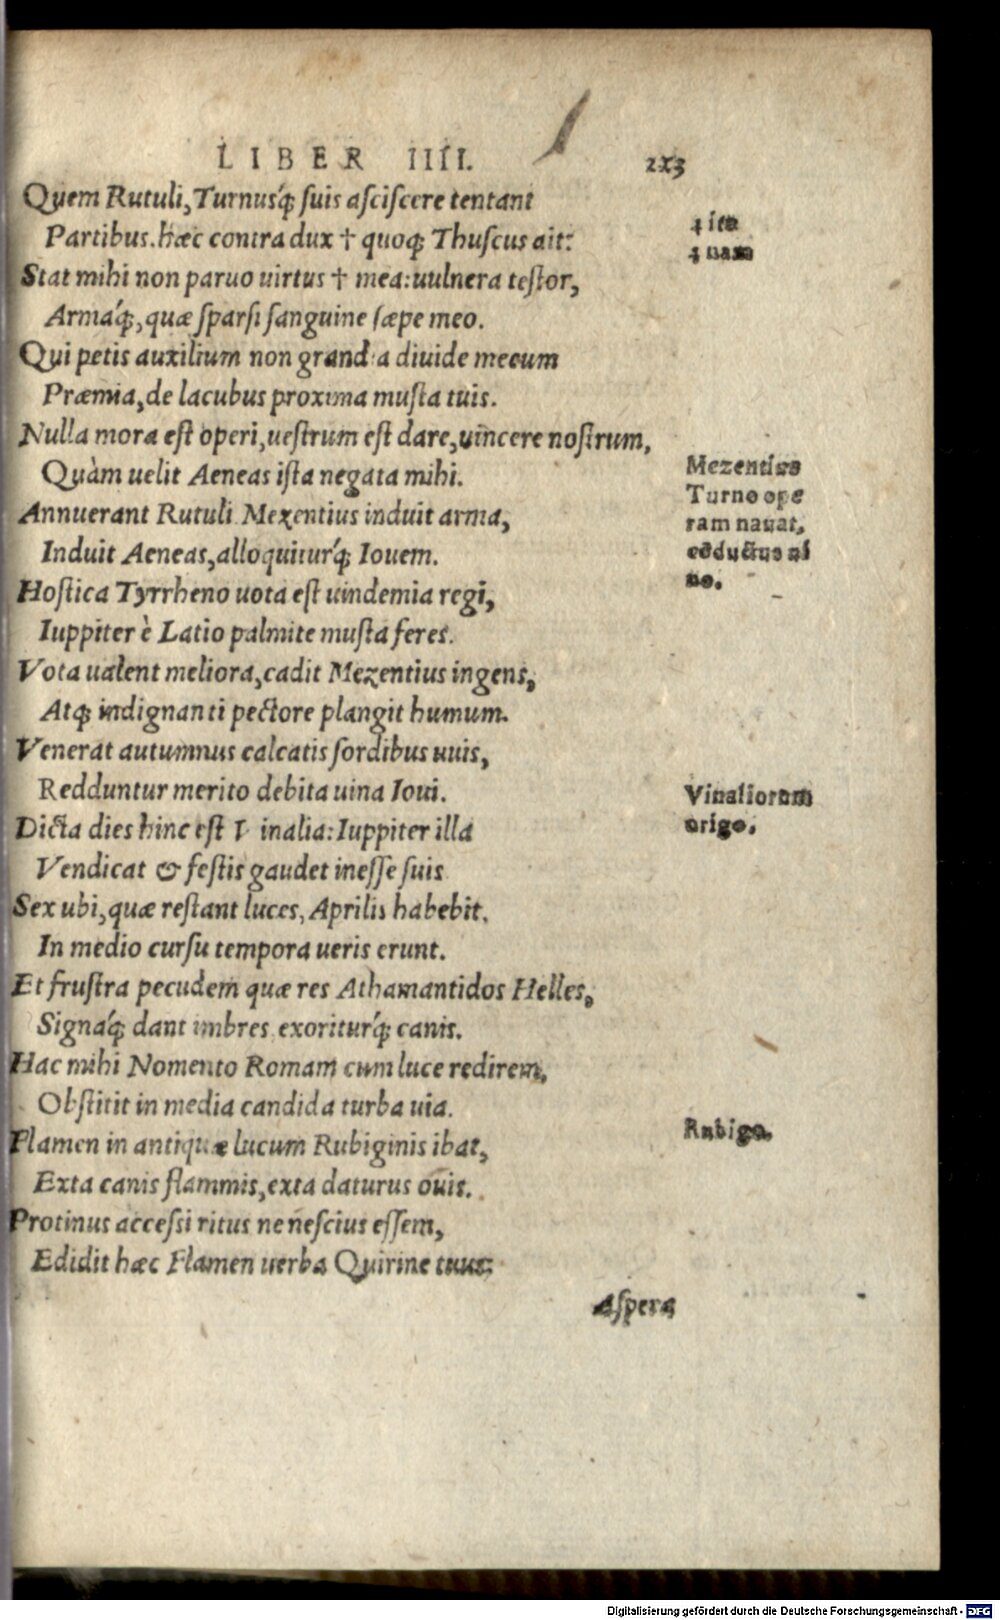 LIBER IIII. 213
Quem Rutuli, Turnusq́; suis asciscere tentant
Partibus. hæc contra dux † quoq; Thuscus ait:
Stat mihi non paruo uirtus † mea: uulnera testor,
Armaq́;, quæ sparsi sanguine sæpe meo.
Qui petis auxilium non grandia diuide mecum
Præmia, de lacubus proxima musta tuis.
Nulla mora est operi, uestrum est dare, uincere nostrum,
Quàm uelit Aeneas ista negata mihi.
Annuerant Rutuli Mezentius induit arma,
Induit Aeneas, alloquiturq́; Iouem.
Hostica Tyrrheno uota est uindemia regi,
Iuppiter è Latio palmite musta feres.
Vota ualent meliora, cadit Mezentius ingens,
Atq; indignanti pectore plangit humum.
Venerat autumnus calcatis sordibus uuis,
Redduntur merito debita uina Ioui.
Dicta dies hinc est Vinalia: Iuppiter illa
Vendicat & festis gaudet inesse suis
Sex ubi, quæ restant luces, Aprilis habebit.
In medio cursu tempora ueris erunt.
Et frustra pecudem quæ res Athamantidos Helles,
Signaq́; dant imbres exoriturq́; canis.
Hac mihi Nomento Romam cum luce redirem,
Obstitit in media candida turba uia.
Flamen in antiquæ lucum Rubiginis ibat,
Exta canis flammis, exta daturus ouis.
Protinus accessi ritus ne nescius essem,
Edidit hæc Flamen uerba Quirine tuus:
Aspera
ɬ ita
ɬ nam
Mezentius
Turno ope
ram nauat,
cõductus ui
no.
Vinaliorum
origo.
Rubigo.
Digitalisierung gefördert durch die Deutsche Forschungsgemeinschaft - DFG